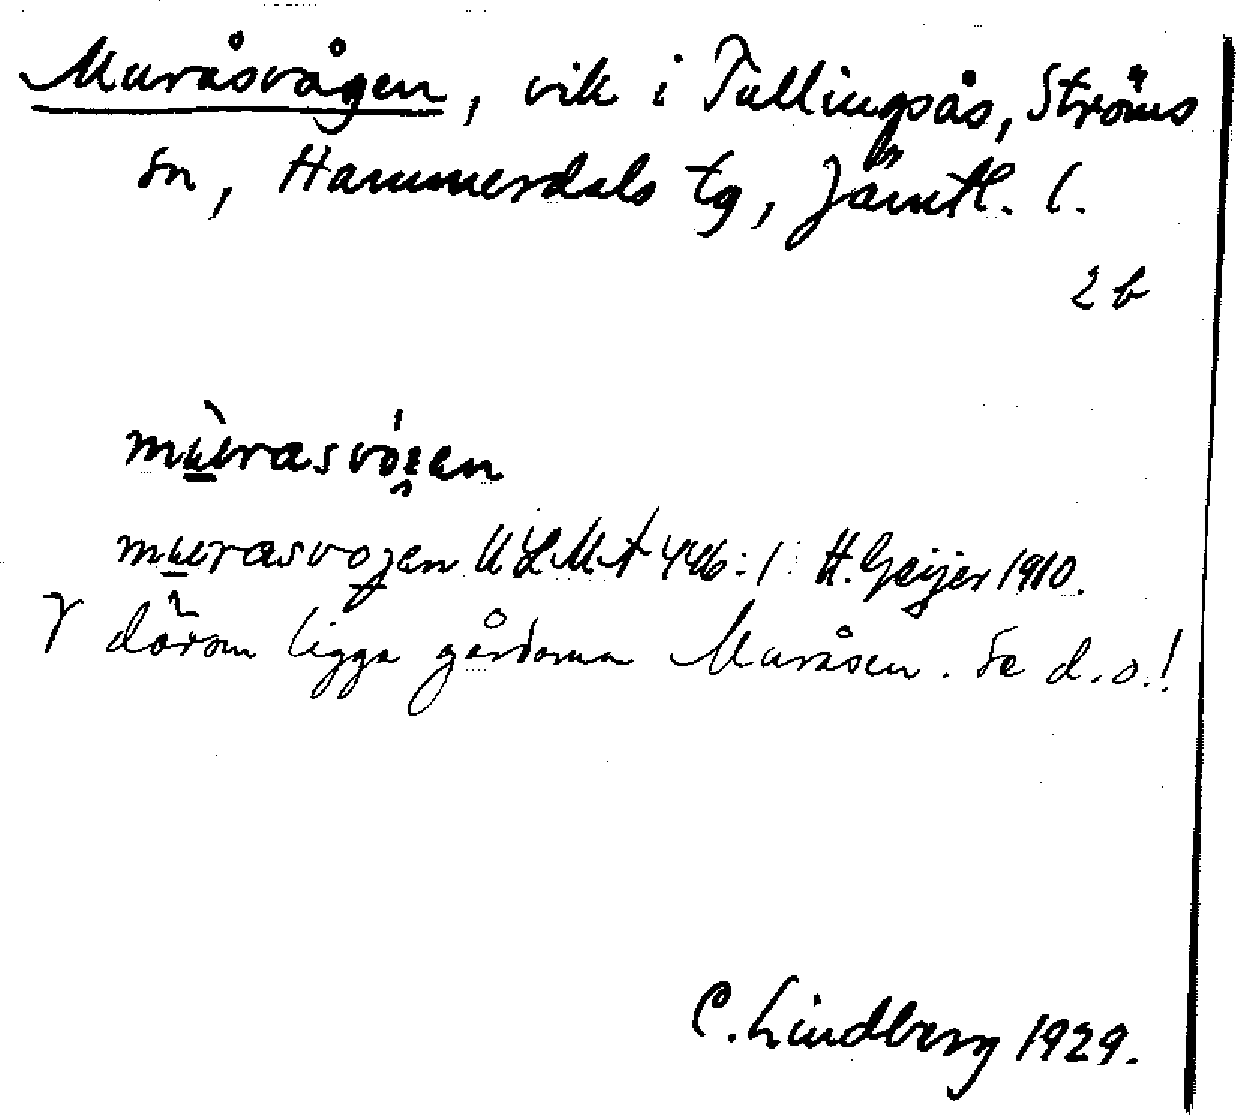 Muråsvågen, vik i Tullingsås, Ströms
sn, Hammerdals tg, Jämtl. l.
2 b
mùrasvógen
murasvogen ULMA 446:1 H. Geijer 1910.
V därom ligga gårdarna Muråsen. Se d.o.!
C. Lindberg 1929.